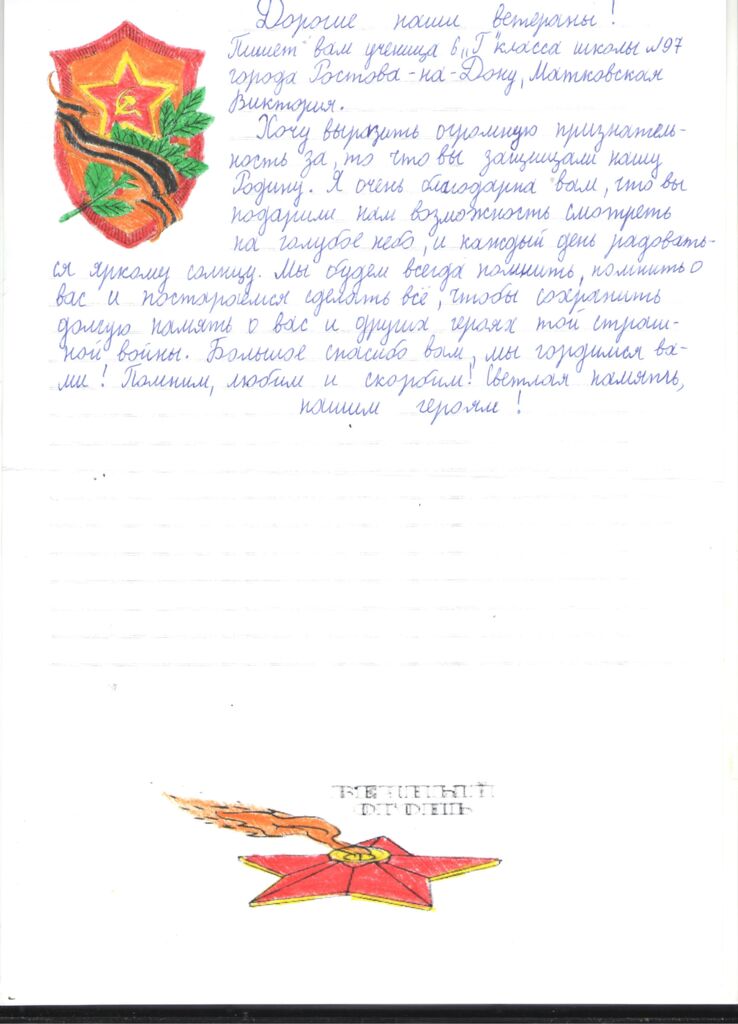 Дорогие наши ветераны!
Пишет вам ученица 6 „Г" класса школы №97
города Ростова-на-Дону, Матковская
Виктория.
Хочу выразить огромную признатель-
ность за, то что вы защищали нашу
Родину. Я очень благодарна вам, что вы
подарили нам возможность смотреть
на голубое небо, и каждый день радовать-
ся яркому солнцу. Мы будем всегда помнить, помнить о
вас и постараемся сделать всё, чтобы сохранить
долгую память о вас и других героях той страш-
ной войны. Большое спасибо вам, мы гордимся ва-
ми! Помним, любим и скорбим! Светлая память,
нашим героям!
ВЕЧНЫЙ
ОГОНЬ